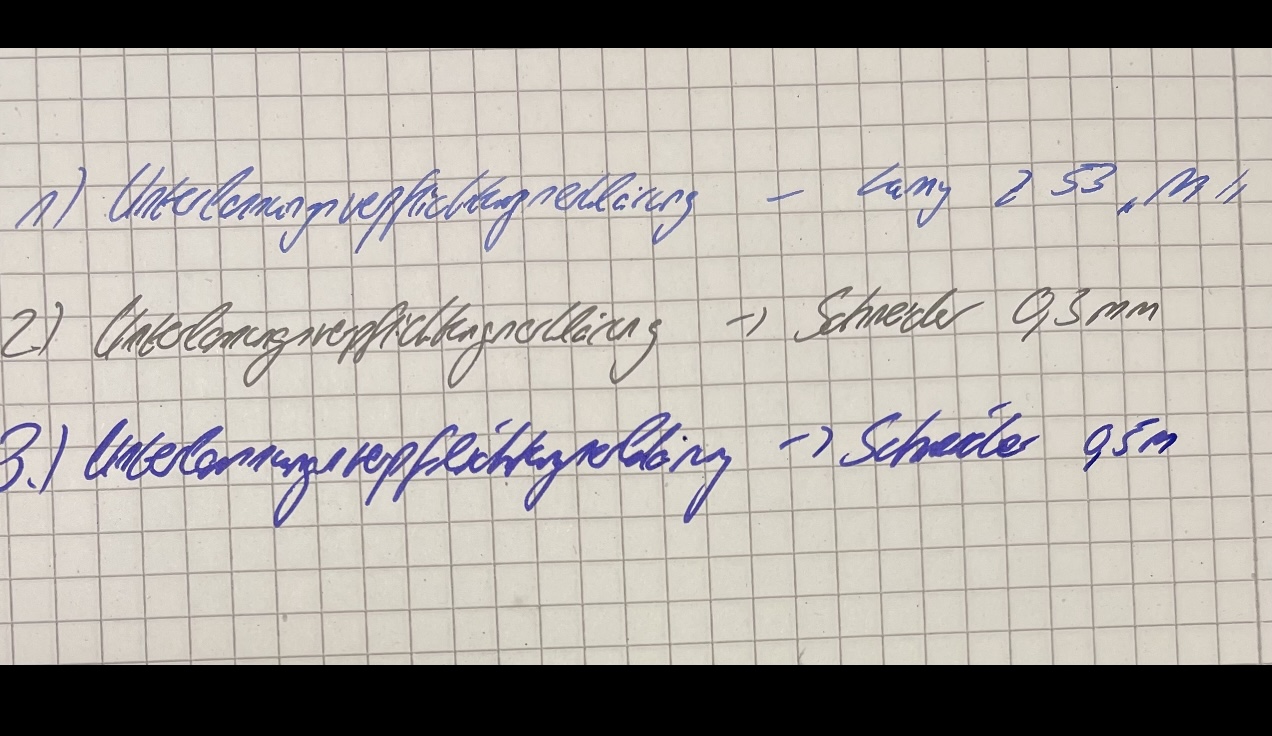 1) Unterlassungsverpflichtungserklärung – Lamy Z 53 „M“
2) Unterlassungsverpflichtungserklärung -> Schneider 0,3mm
3.) Unterlassungsverpflichtungserklärung -> Schneider 0,5m